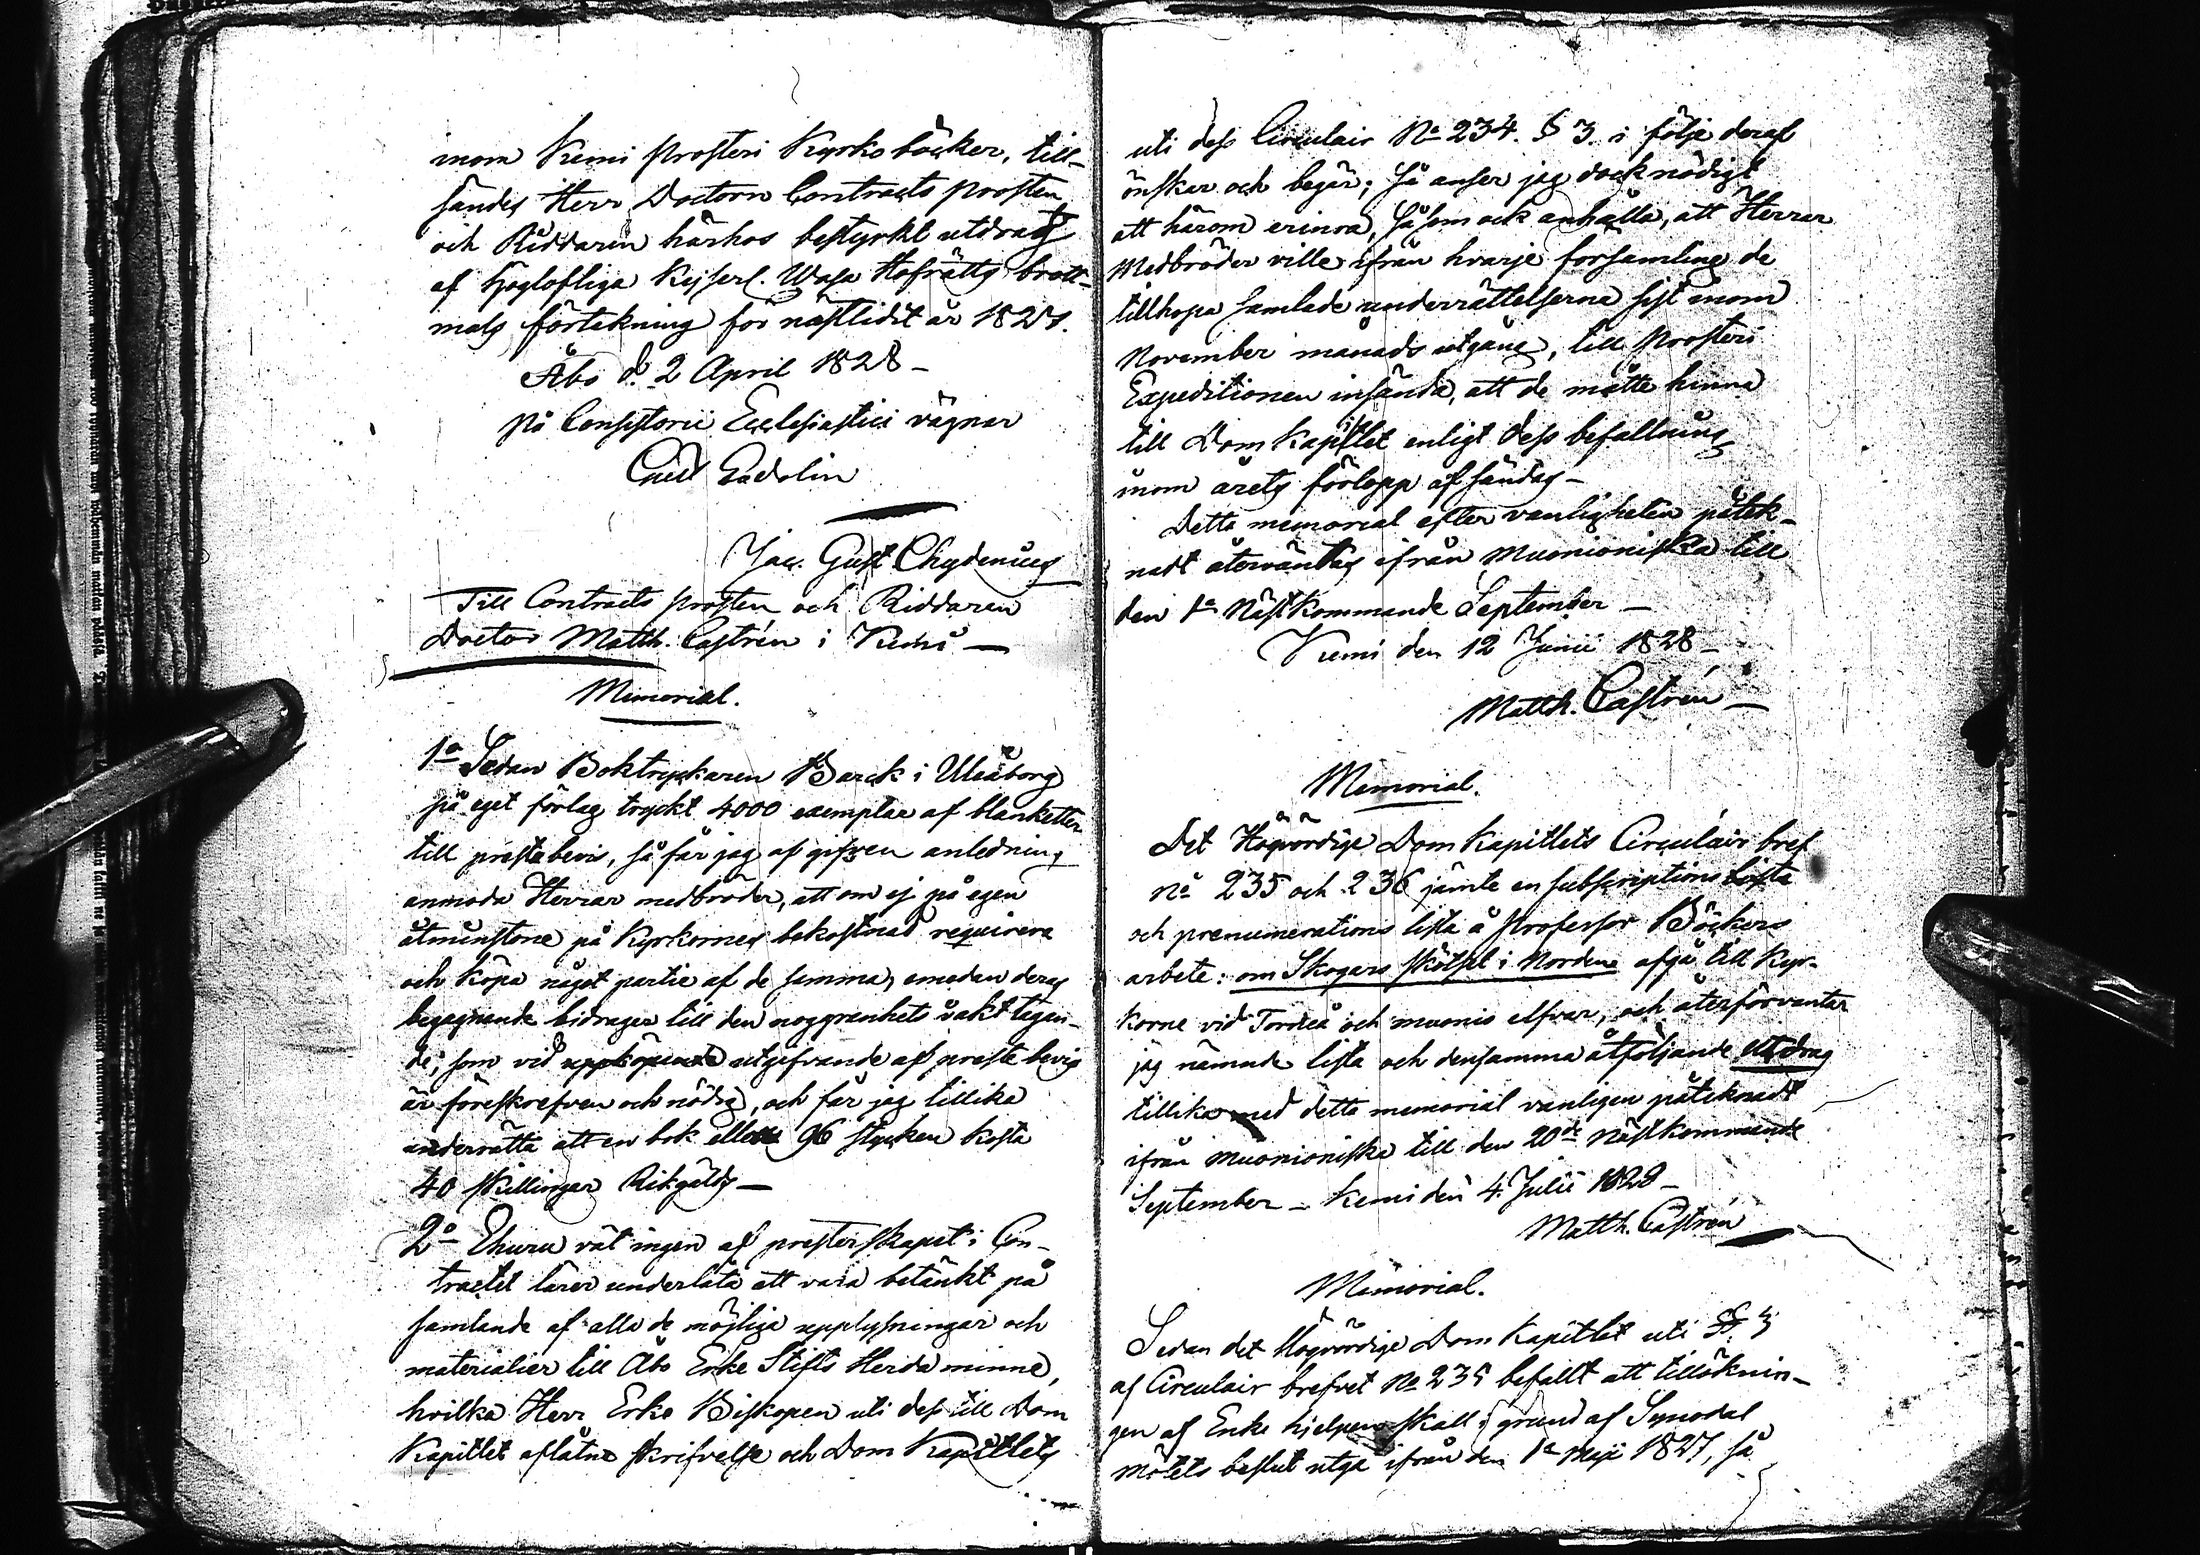 inom Kemi Prosteri Kyrko böcker, till-
sändes Herr Doctorn Contracts Prosten
och Riddaren härhos bestyrkt utdrag
af Höglofliga Kejserl. Wasa Hofrätts brott-
mals förtekning för nästlidit år 1827.
Åbo d. 2 April 1828 -
På Consistorii Ecclesiastici vägnar
Gust Gadolin
Jac. Gust Chydenius
Till Contracts Prosten och Riddaren
Doctor Matth. Castrén i Kemi -
Memorial.
1o Sedan Boktryckaren Barck i Uleåborg
på eget förlag tryckt 4000 exemplar af blanketter
till prestabevis, så får jag af gifven anledning
anmoda Herrar medbröder, att om ej på egen
åtminstone på Kyrkornes bekostnad requirera
och köpa något partie af de samma, emedan deras
begagnande bidrager till den noggranhets vakttagan-
de, som vid utgifvande af preste bevis
är föreskrefven och nödig, och får jag tillika
underrätta att en bok eller 96 stycken kosta
40 skillingar Riksgälds -
2o Ehuru väl ingen af presterskapet i Con-
tractet lärer underlåta att vara betänkt på
samlande af alla de möjliga upplysningar och
materialier till Åbo Erke Stifts Herda minne,
hvilka Herr Erke Biskopen uti dess till Dom
Kapitlet aflåtne skrifvelse och Dom Kapitlets
uti dess Circulair No 234. § 3. i följe deraf
önskar och begär; Så anser jag dock nödigt
att härom erinra, så som ock anhålla, att Herrar
Medbröder ville ifrån hvarje församling de
tillhopa samlade underrättelserna sist inom
November månads utgång, till Prosteri
Expeditionen insända, att de måtte hinna
till Dom Kapitlet enligt dess befallning
inom årets förlopp afsändas -
Detta memorial efter vanligheten påtek-
nadt återväntas ifrån Muonioniska till
den 1a Nästkommande September -
Kemi den 12 Junii 1828 -
Matth. Castrén -
Memorial.
Det Högvördige Dom Kapitlets Circulair bref
No 235 och 236 jämte en subscriptions lista
och prenumerations lista å Professor Böckers
arbete: om Skogars skötsel i Norden afgå till Kyr-
korne vid Torneå och muonio elfvar, och återförväntar
jag nämnde lista och densamma åtföljande utdrag
tillika med detta memorial vanligen påteknadt
ifrån Muonioniska till den 20de nästkommande
September - Kemi den 4 Julii 1828 -
Matth. Castrén
Memorial.
Sedan det Högvördige Dom Kapitlet uti § 3
af Circulair brefvet No 235 befallt att tillöknin-
gen af Enke hjelpen skall i grund af Synodal
mötets beslut utgå ifrån den 1a Maji 1827, så